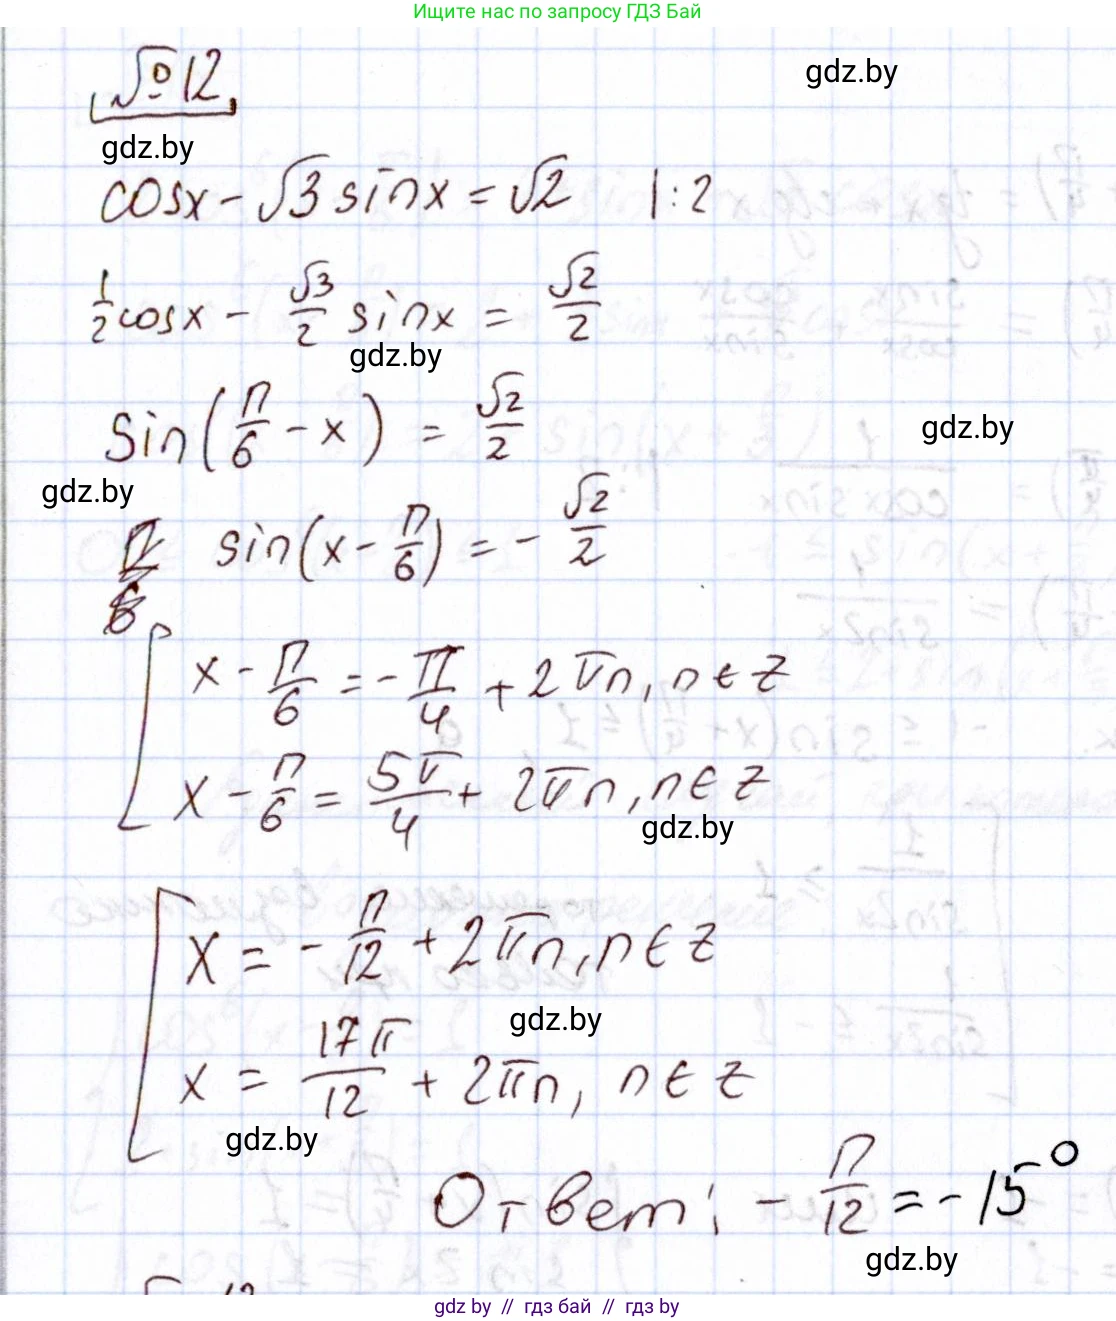 Ищите нас по запросу ГДЗ Бай
№12
gdz.by
gdz.by
cosx - √3 sinx = √2 | : 2
1/2 cosx - √3/2 sinx = √2/2
gdz.by
sin(π/6 - x) = √2/2
gdz.by
gdz.by
sin(x - π/6) = - √2/2
x - π/6 = - π/4 + 2πn, n ∈ Z
x - π/6 = 5π/4 + 2πn, n ∈ Z
gdz.by
x = - π/12 + 2πn, n ∈ Z
gdz.by
x = 17π/12 + 2πn, n ∈ Z
gdz.by
Ответ: - π/12 = -15°
gdz.by
gdz by // гдз бай // гдз by